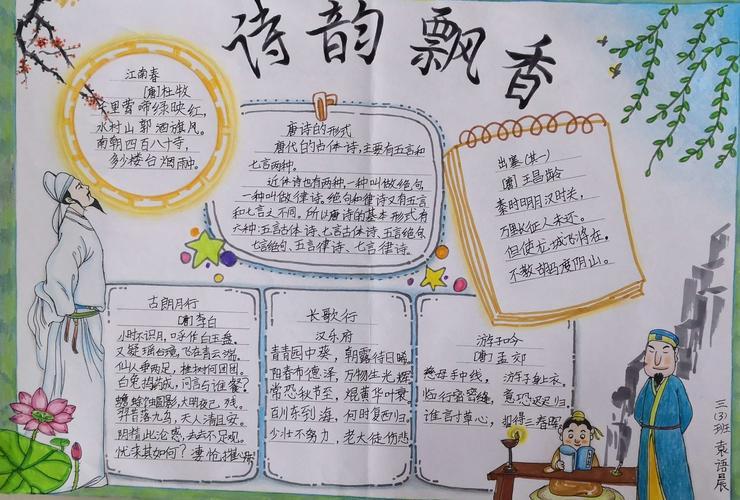 诗韵飘香
江南春
[唐]杜牧
千里莺啼绿映红,
水村山郭酒旗风。
南朝四百八十寺,
多少楼台烟雨中。
唐诗的形式
唐代的古体诗,主要有五言和
七言两种。
近体诗也有两种,一种叫做绝句,
一种叫做律诗。绝句和律诗又有五言
和七言之不同。所以唐诗的基本形式有
六种:五言古体诗、七言古体诗、五言绝句、
七言绝句、五言律诗、七言律诗。
出塞(其一)
[唐]王昌龄
秦时明月汉时关,
万里长征人未还。
但使龙城飞将在,
不教胡马度阴山。
古朗月行
[唐]李白
小时不识月,呼作白玉盘。
又疑瑶台镜,飞在青云端。
仙人垂两足,桂树何团团。
白兔捣药成,问言与谁餐?
蟾蜍蚀圆影,大明夜已残。
羿昔落九乌,天人清且安。
阴精此沦惑,去去不足观。
忧来其如何?凄怆摧心肝
长歌行
汉乐府
青青园中葵,朝露待日晞。
阳春布德泽,万物生光辉。
常恐秋节至,焜黄华叶衰。
百川东到海,何时复西归。
少壮不努力,老大徒伤悲
游子吟
[唐]孟郊
慈母手中线,游子身上衣。
临行密密缝,意恐迟迟归。
谁言寸草心,报得三春晖。
三(3)班 袁语晨